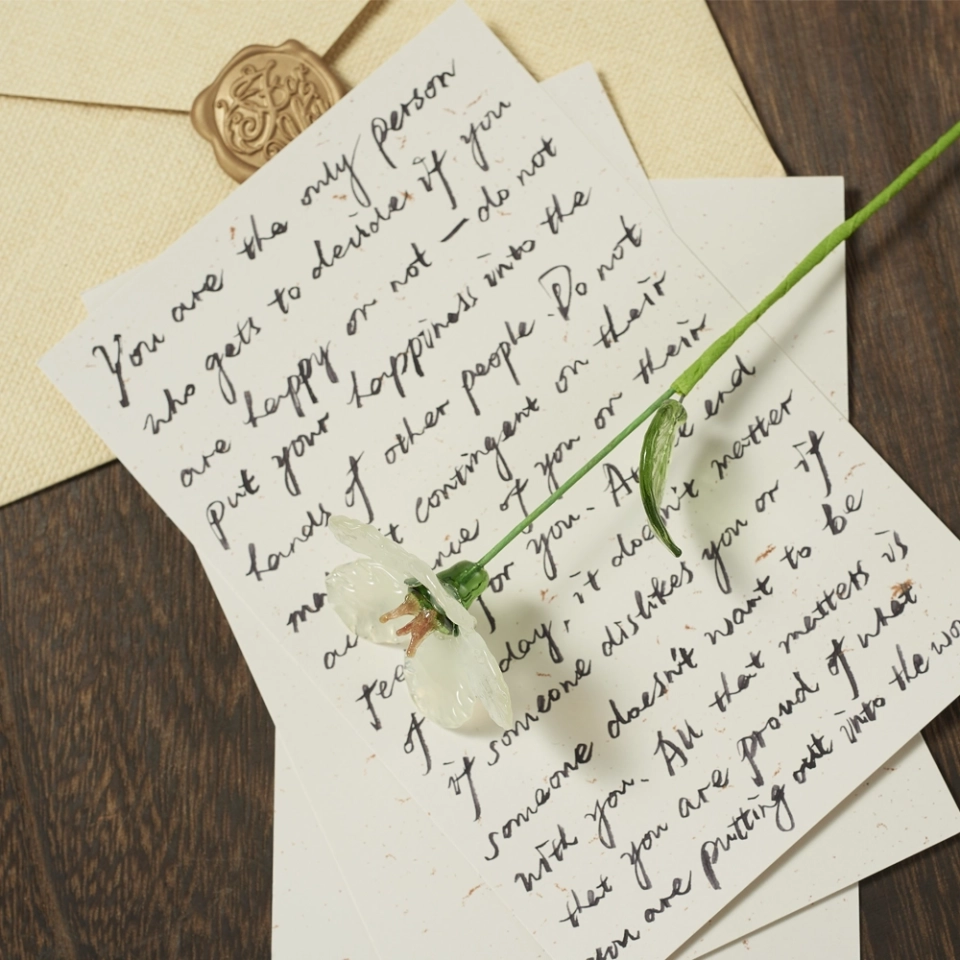 You are the only person
who gets to decide if you
are happy or not — do not
put your happiness into the
hands of other people. Do not
contingent on their
of you or their
for you. At end
of day, it doesn't matter
if someone dislikes you or if
someone doesn't want to be
with you. All that matters is
that you are proud of what
are putting out into the